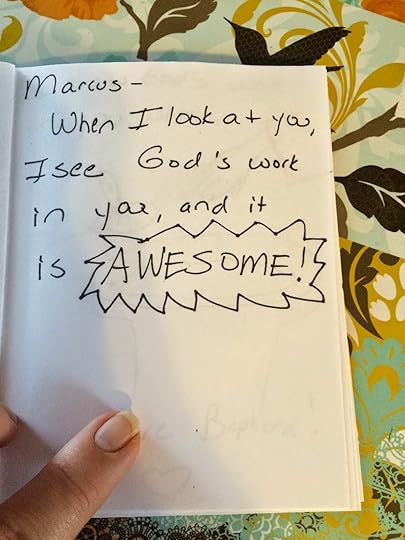 Marcus -
When I look at you,
I see God's work
in you, and it
is AWESOME!